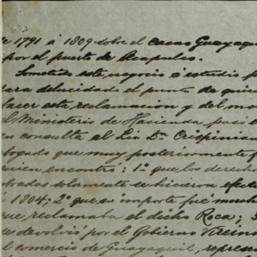 de 1791 á 1809 sobre el cacao Guayaqu
por el puerto de Acapulco.
Sometido este negocio á estudio p
dara delucidado el punto de quien
hacer esta reclamacion y del mo
l Ministerio de Hacienda, pasó e
en consulta al Lic. Dn. Crispinian
bogado que muy posteriormente
quien encontró: 1º que los derech
trados solamente se hicieron efect
1804; 2º que su importe fué much
que reclamaba el dicho Roca; 3
se devolvió por el Gobierno Vireina
l comercio de Guayaquil, represen